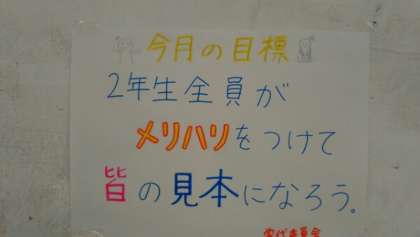 今月の目標
2年生全員が
メリハリをつけて
皆の見本になろう。